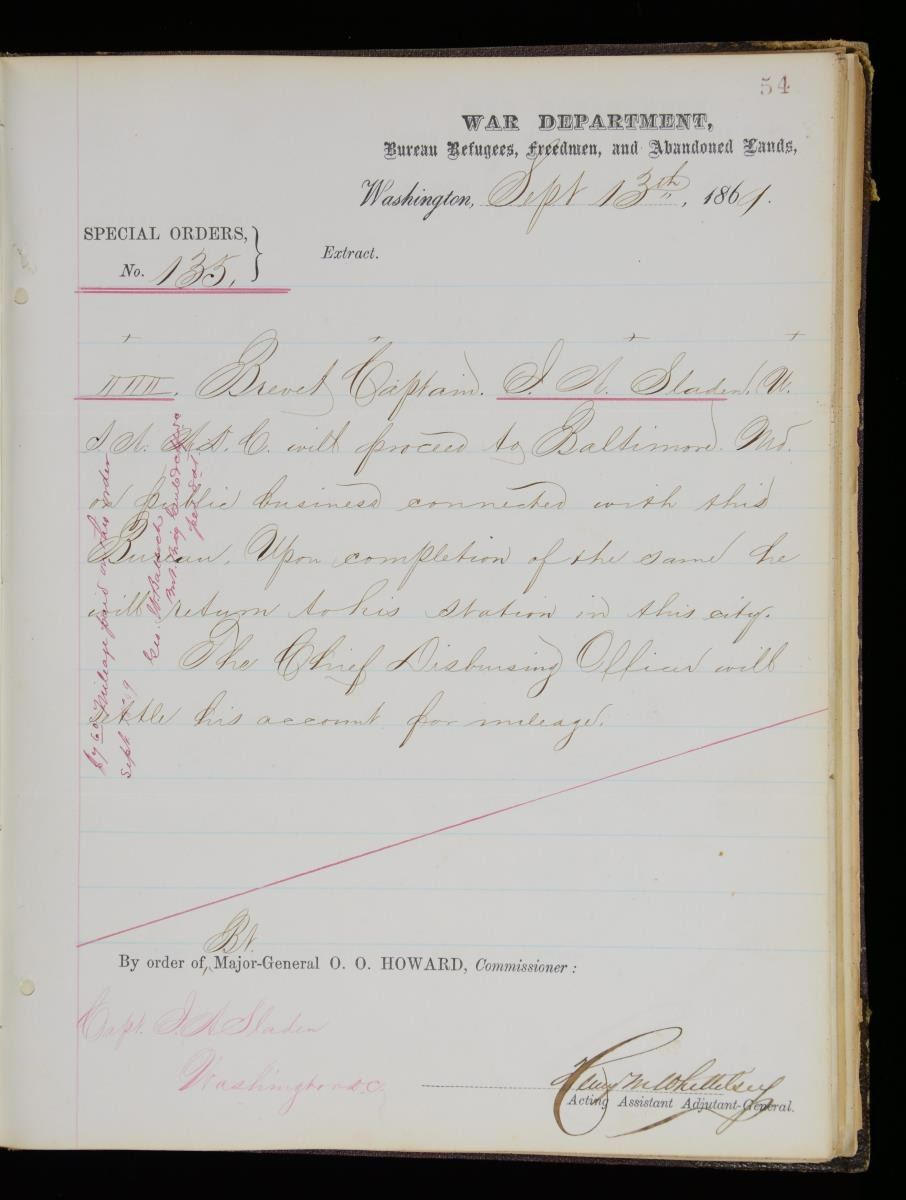 54
WAR DEPARTMENT,
Bureau Refugees, Freedmen, and Abandoned Lands,
Washington, Sept 13th, 1869.
SPECIAL ORDERS,
No. 135,
Extract.
IIII. Brevet Captain J. A. Sladen, U.
S. A. A.D.C. will proceed to Baltimore Md.
on public business connected with this
Bureau. Upon completion of the same he
will return to his station in this city.
The Chief Disbursing Officer will
settle his account for mileage.
Mileage paid on this order
Sept
Geo. W. Balloch
Bt.
By order of, Major-General O. O. HOWARD, Commissioner :
Capt. J. A Sladen
Washington D.C.
Henry M Whittelsey
Acting Assistant Adjutant-General.